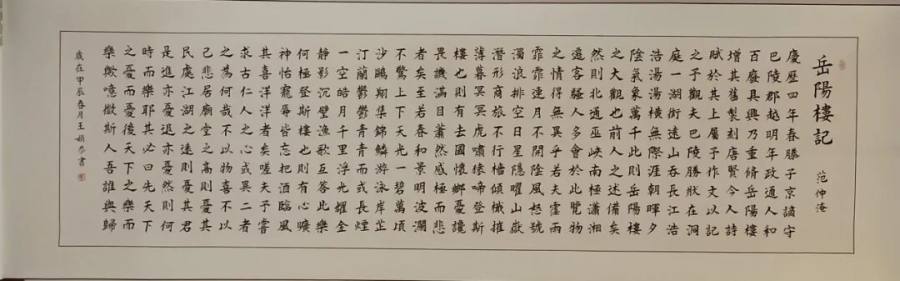 岳陽樓記
范仲淹
慶歷四年春滕子京謫守
巴陵郡越明年政通人和
百廢具興乃重脩岳陽樓
增其舊製刻唐賢今人詩
賦於其上屬予作文以記
之予觀夫巴陵勝狀在洞
庭一湖銜遠山吞長江浩
浩湯湯橫無際涯朝暉夕
陰氣象萬千此則岳陽樓
之大觀也前人之述備矣
然則北通巫峽南極瀟湘
遷客騷人多會於此覽物
之情得無異乎若夫霪雨
霏霏連月不開陰風怒號
濁浪排空日星隱曜山嶽
潛形商旅不行檣傾檝摧
薄暮冥冥虎嘯猿啼登斯
樓也則有去國懷鄉憂讒
畏譏滿目蕭然感極而悲
者矣至若春和景明波瀾
不驚上下天光一碧萬頃
沙鷗翔集錦鱗游泳岸芷
汀蘭鬱鬱青青而或長煙
一空皓月千里浮光耀金
靜影沉璧漁歌互答此樂
何極登斯樓也則有心曠
神怡寵辱皆忘把酒臨風
其喜洋洋者矣嗟夫予嘗
求古仁人之心或異二者
之為何哉不以物喜不以
己悲居廟堂之高則憂其
民處江湖之遠則憂其君
是進亦憂退亦憂然則何
時而樂耶其必曰先天下
之憂而憂後天下之樂而
樂歟噫微斯人吾誰與歸
歲在甲辰春月王娟恭書